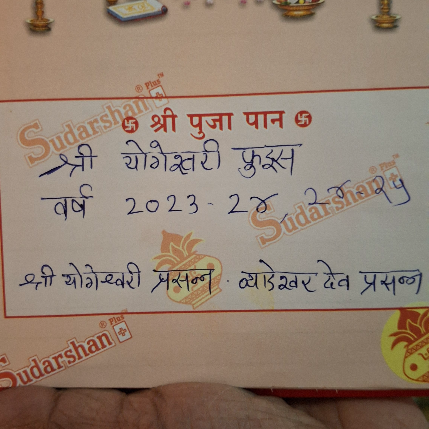 Sudarshan Plus
卐 श्री पुजा पान 卐
श्री योगेश्वरी फ्रुट्स
वर्ष 2023-24, 24-25
Sudarshan Plus
श्री योगेश्वरी प्रसन्न . व्याडेश्वर देव प्रसन्न
Sudarshan Plus